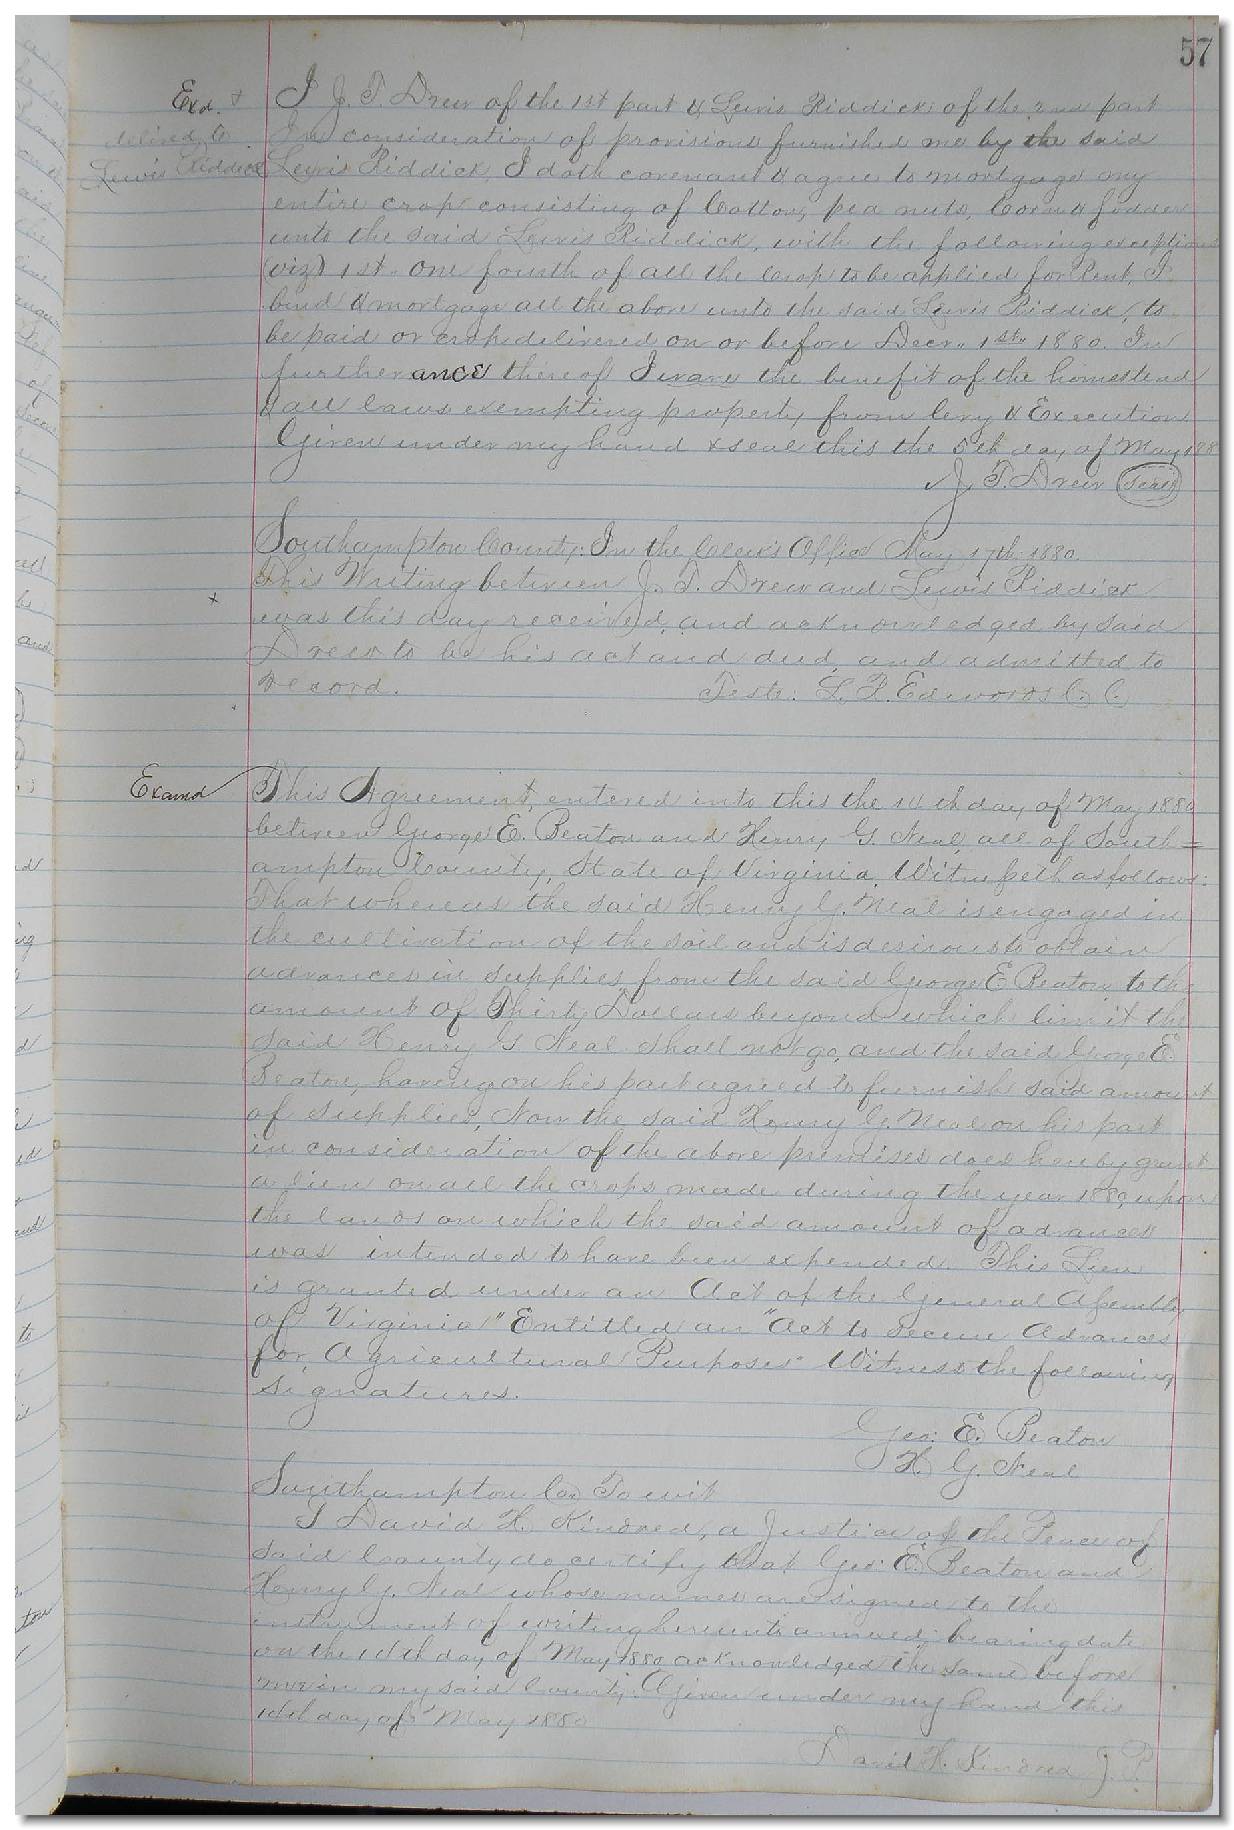 57
Exd. +
delired to
Lewis Riddick
I J. T. Drew of the 1st part & Lewis Riddick of the 2nd part
In consideration of provisions furnished me by the said
Lewis Riddick, I doth covenant & agree to mortgage my
entire crop consisting of Cotton, pea nuts, Corn & fodder
unto the said Lewis Riddick, with the following exceptions
(viz) 1st. One fourth of all the crop to be applied for Rent, I
bind & mortgage all the above unto the said Lewis Riddick, to
be paid or crop delivered on or before Decr. 1st. 1880. In
furtherance thereof I wave the benefit of the homestead
& all laws exempting property from levy & Execution
Given under my hand & seal this the 5th day of May 188
J. T. Drew (Seal)
Southampton County: In the Clerk's Office May 17th 1880.
This Writing between J. T. Drew and Lewis Riddick
+
was this day received, and acknowledged by said
Drew to be his act and deed, and admitted to
record. Teste: L. R. Edwards C. C.
Examd
This Agreement, entered into this the 14th day of May 1880
between George E. Beaton and Henry G. Neal, all of South=
ampton County, State of Virginia, Witnesseth as follows:
That whereas the said Henry G. Neal is engaged in
the cultivation of the soil and is desirous to obtain
advances in supplies from the said George E Beaton to the
amount of Thirty Dollars beyond which limit the
said Henry G Neal shall not go, and the said George E.
Beaton, having on his part agreed to furnish said amount
of supplies, Now the said Henry G. Neal on his part
in consideration of the above premises does hereby grant
a lien on all the crops made during the year 1880, upon
the lands on which the said amount of advances
was intended to have been expended. This Lien
is granted under an Act of the General Assembly
of Virginia "Entitled an "Act to secure Advances
for Agricultural Purposes" Witness the following
signatures.
Geo: E. Beaton
H. G. Neal
Southampton Co. To wit
I David H. Kindred, a Justice of the Peace of
said County, do certify that Geo: E. Beaton and
Henry G. Neal whose names are signed to the
instrument of writing hereunto annexed; bearing date
on the 14th day of May 1880 acknowledged the same before
me in my said County. Given under my hand this
14th day of May 1880
David H. Kindred J. P.